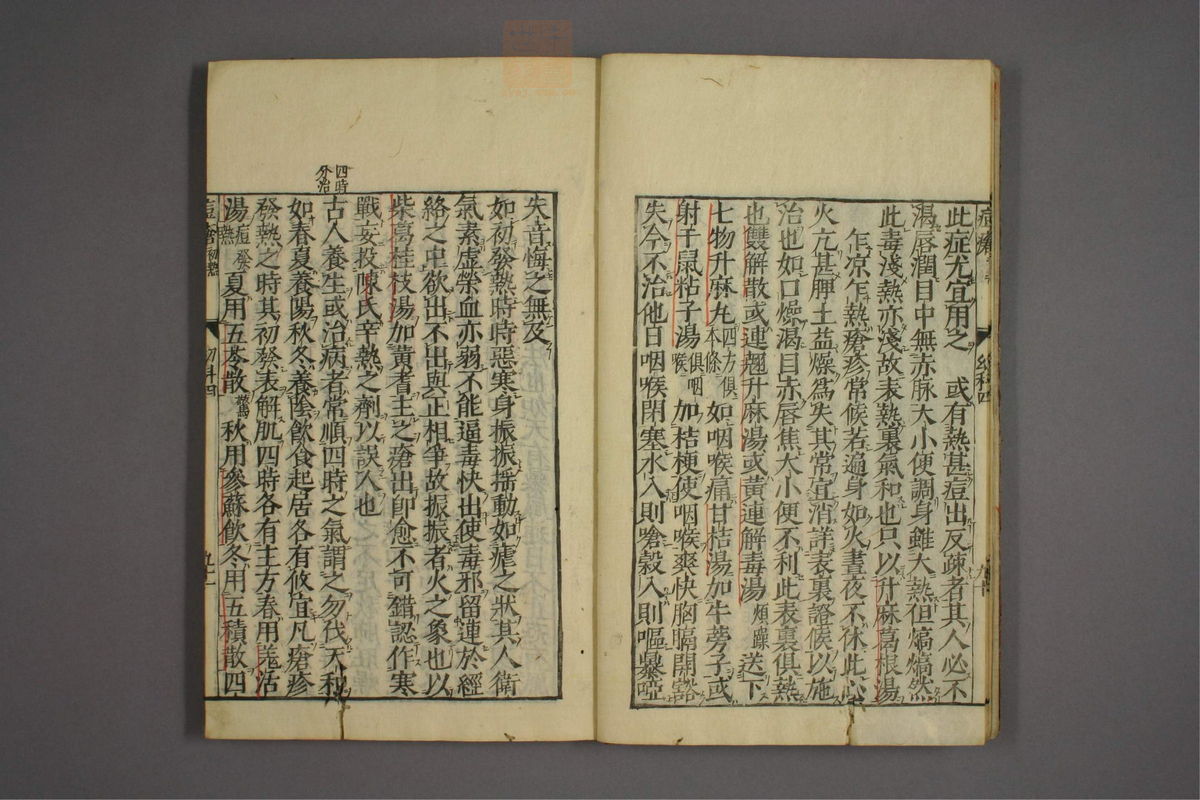 此症尤宜用之　或有熱甚痘出反疎者其人必不
渴唇潤目中無赤脉大小便調身雖大熱但熇熇然
此毒淺熱亦淺故表熱裏氣和也只以升麻葛根湯
乍凉乍熱瘡疹常候若遍身如火晝夜不休此心
火亢甚脾土益燥爲失其常宜消詳表裏證候以施
治也如口燥渴目赤唇焦大小便不利此表裏俱熱
也雙解散或連翹升麻湯或黄連解毒湯煩躁送下
七物升麻丸四方俱本條如咽喉痛甘桔湯加牛蒡子或
射干鼠粘子湯俱咽喉加桔梗使咽喉爽快胸膈開豁
失今不治他日咽喉閉塞水入則嗆榖入則嘔暴啞
失音悔之無及
如初發熱時時惡寒身振振揺動如瘧之狀其人衛
氣素虚榮血亦弱不能逼毒快出使毒邪留連於經
絡之中欲出不出與正相爭故振振者火之象也以
柴葛桂枝湯加黄耆主之瘡出即愈不可錯認作寒
戰妄投陳氏辛熱之劑以誤人也
四時分治
古人養生或治病者常順四時之氣謂之勿伐天和
如春夏養陽秋冬養陰飲食起居各有攸宜凡瘡疹
發熱之時其初發表解肌四時各有主方春用羗活
湯痘發熱夏用五苓散驚秋用參蘇飲冬用五積散四